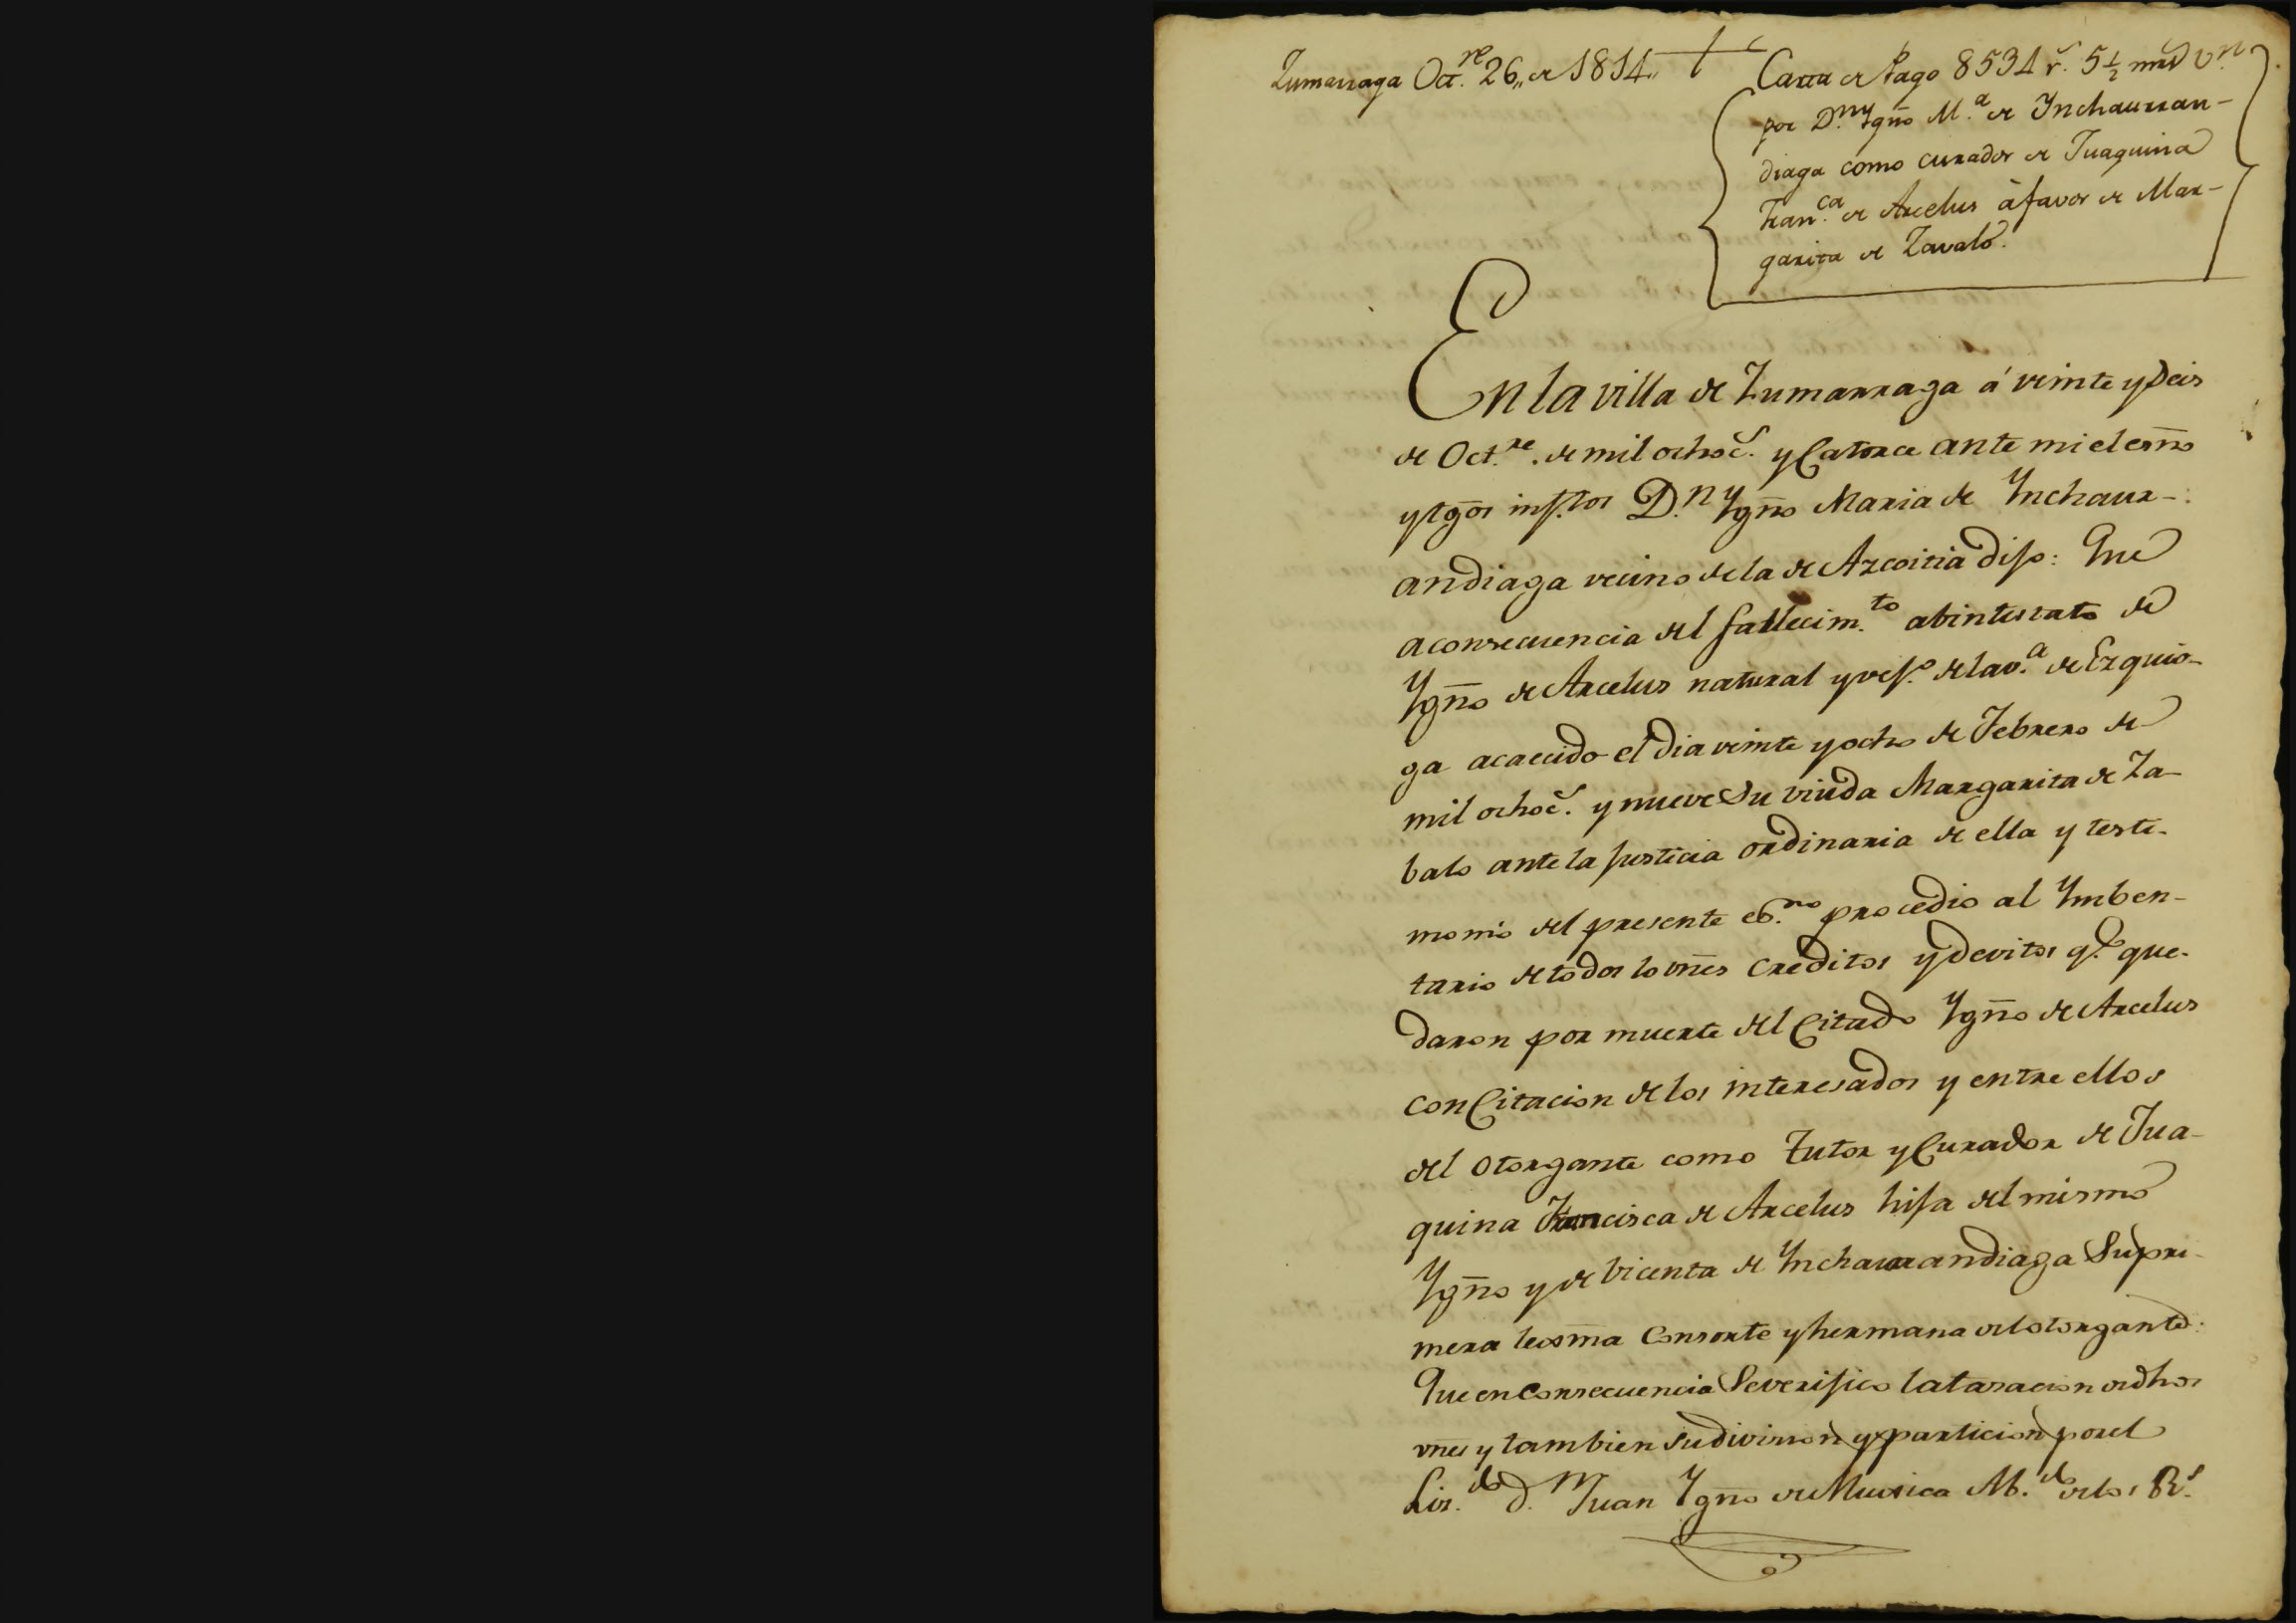 Zumarraga Oct.re 26,, de 1814,,
Carta de Pago 8534 rs. 5 1/2 mrs vn.
por D.n Ygn̄o M.a de Ynchaurran-
diaga como curador de Juaquina
Fran.ca de Arcelus à favor de Mar-
garita de Zavalo.
En la villa de Zumarraga á veinte y seis
de Oct.re. de mil ochoc.s y Catorce ante mi el esn̄o
y tḡos infr.tos D.n Ygn̄o Maria de Ynchaur-
andiaga vecino de la de Azcoitia dijo: Que
a consecuencia del fallecim.to abintestato de
Ygn̄o de Arcelus natural y vez.o de la v.a de Ezquio-
ga acaecido el dia veinte y ocho de Febrero de
mil ochoc.s y nueve su viuda Margarita de Za-
balo ante la justicia ordinaria de ella y testi-
monio del presente es.no procedio al Ymben-
tario de todos lo vn̄es creditos y devitos q.e que-
daron por muerte del Citado Ygn̄o de Arcelus
con Citacion de los interesados y entre ellos
del otorgante como tutor y Curador de Jua-
quina Francisca de Arcelus hija del mismo
Ygn̄o y de Vicenta de Ynchaurrandiaga su pri-
mera lexm̄a Consorte y hermana del otorgante:
Que en consecuencia se verifico la tasacion de dhos
vn̄es y tambien su division y particion por el
Liz.do d.n Juan Ygn̄o de Muxica Ab.do de los R.s